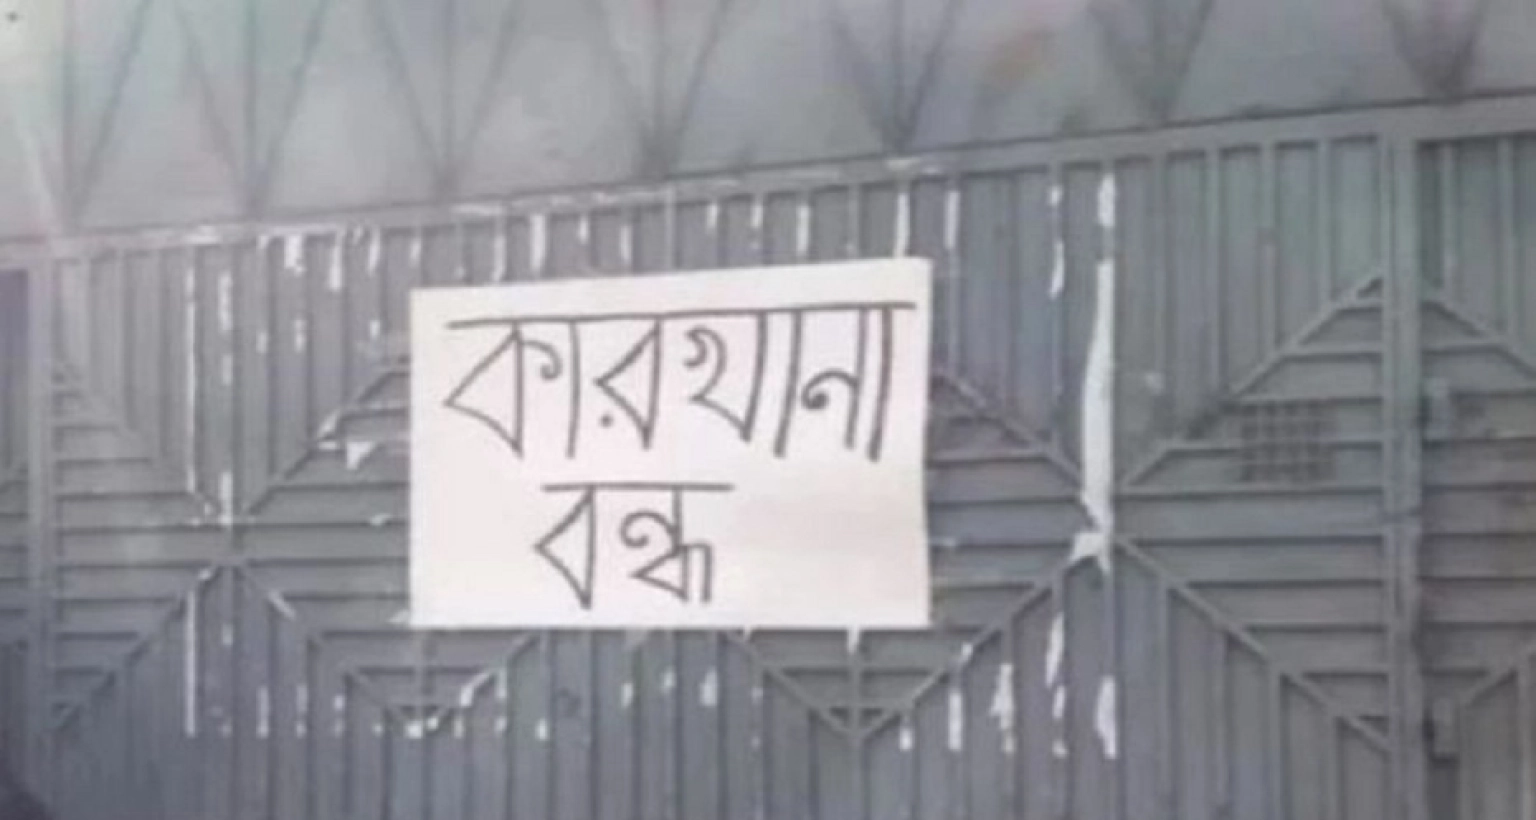 কারখানা
বন্ধ